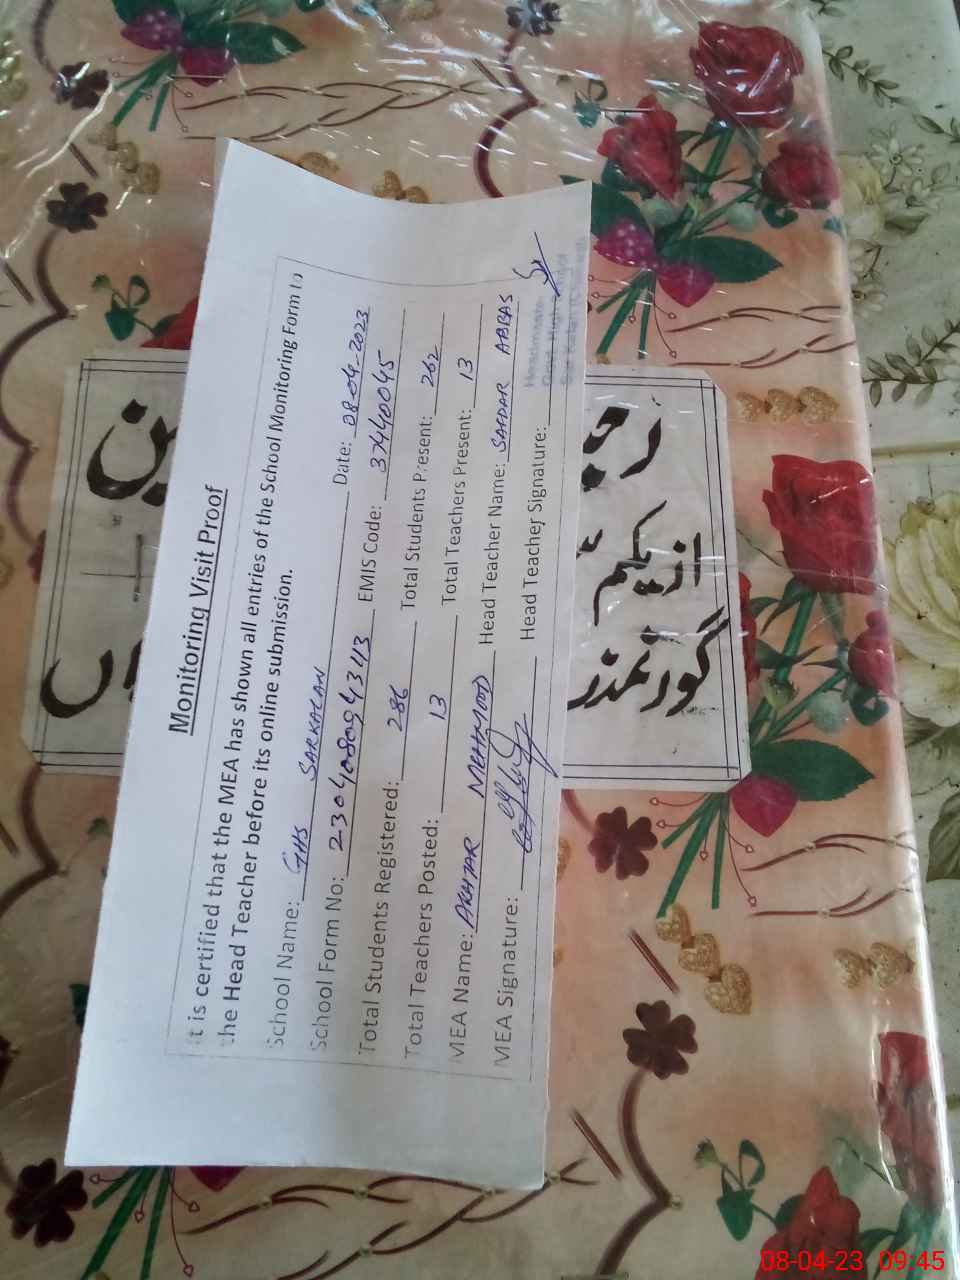 Monitoring Visit Proof
It is certified that the MEA has shown all entries of the School Monitoring Form to
the Head Teacher before its online submission.
School Name: GHS SARKALAN Date: 08-04-2023
School Form No: 230408094343 EMIS Code: 37440045
Total Students Registered: 286 Total Students Present: 262
Total Teachers Posted: 13 Total Teachers Present: 13
MEA Name: AKHTAR MEHMOOD Head Teacher Name: SAFDAR ABBAS
MEA Signature: Head Teacher Signature:
Headmaster
Govt. High School
08-04-23 09:45